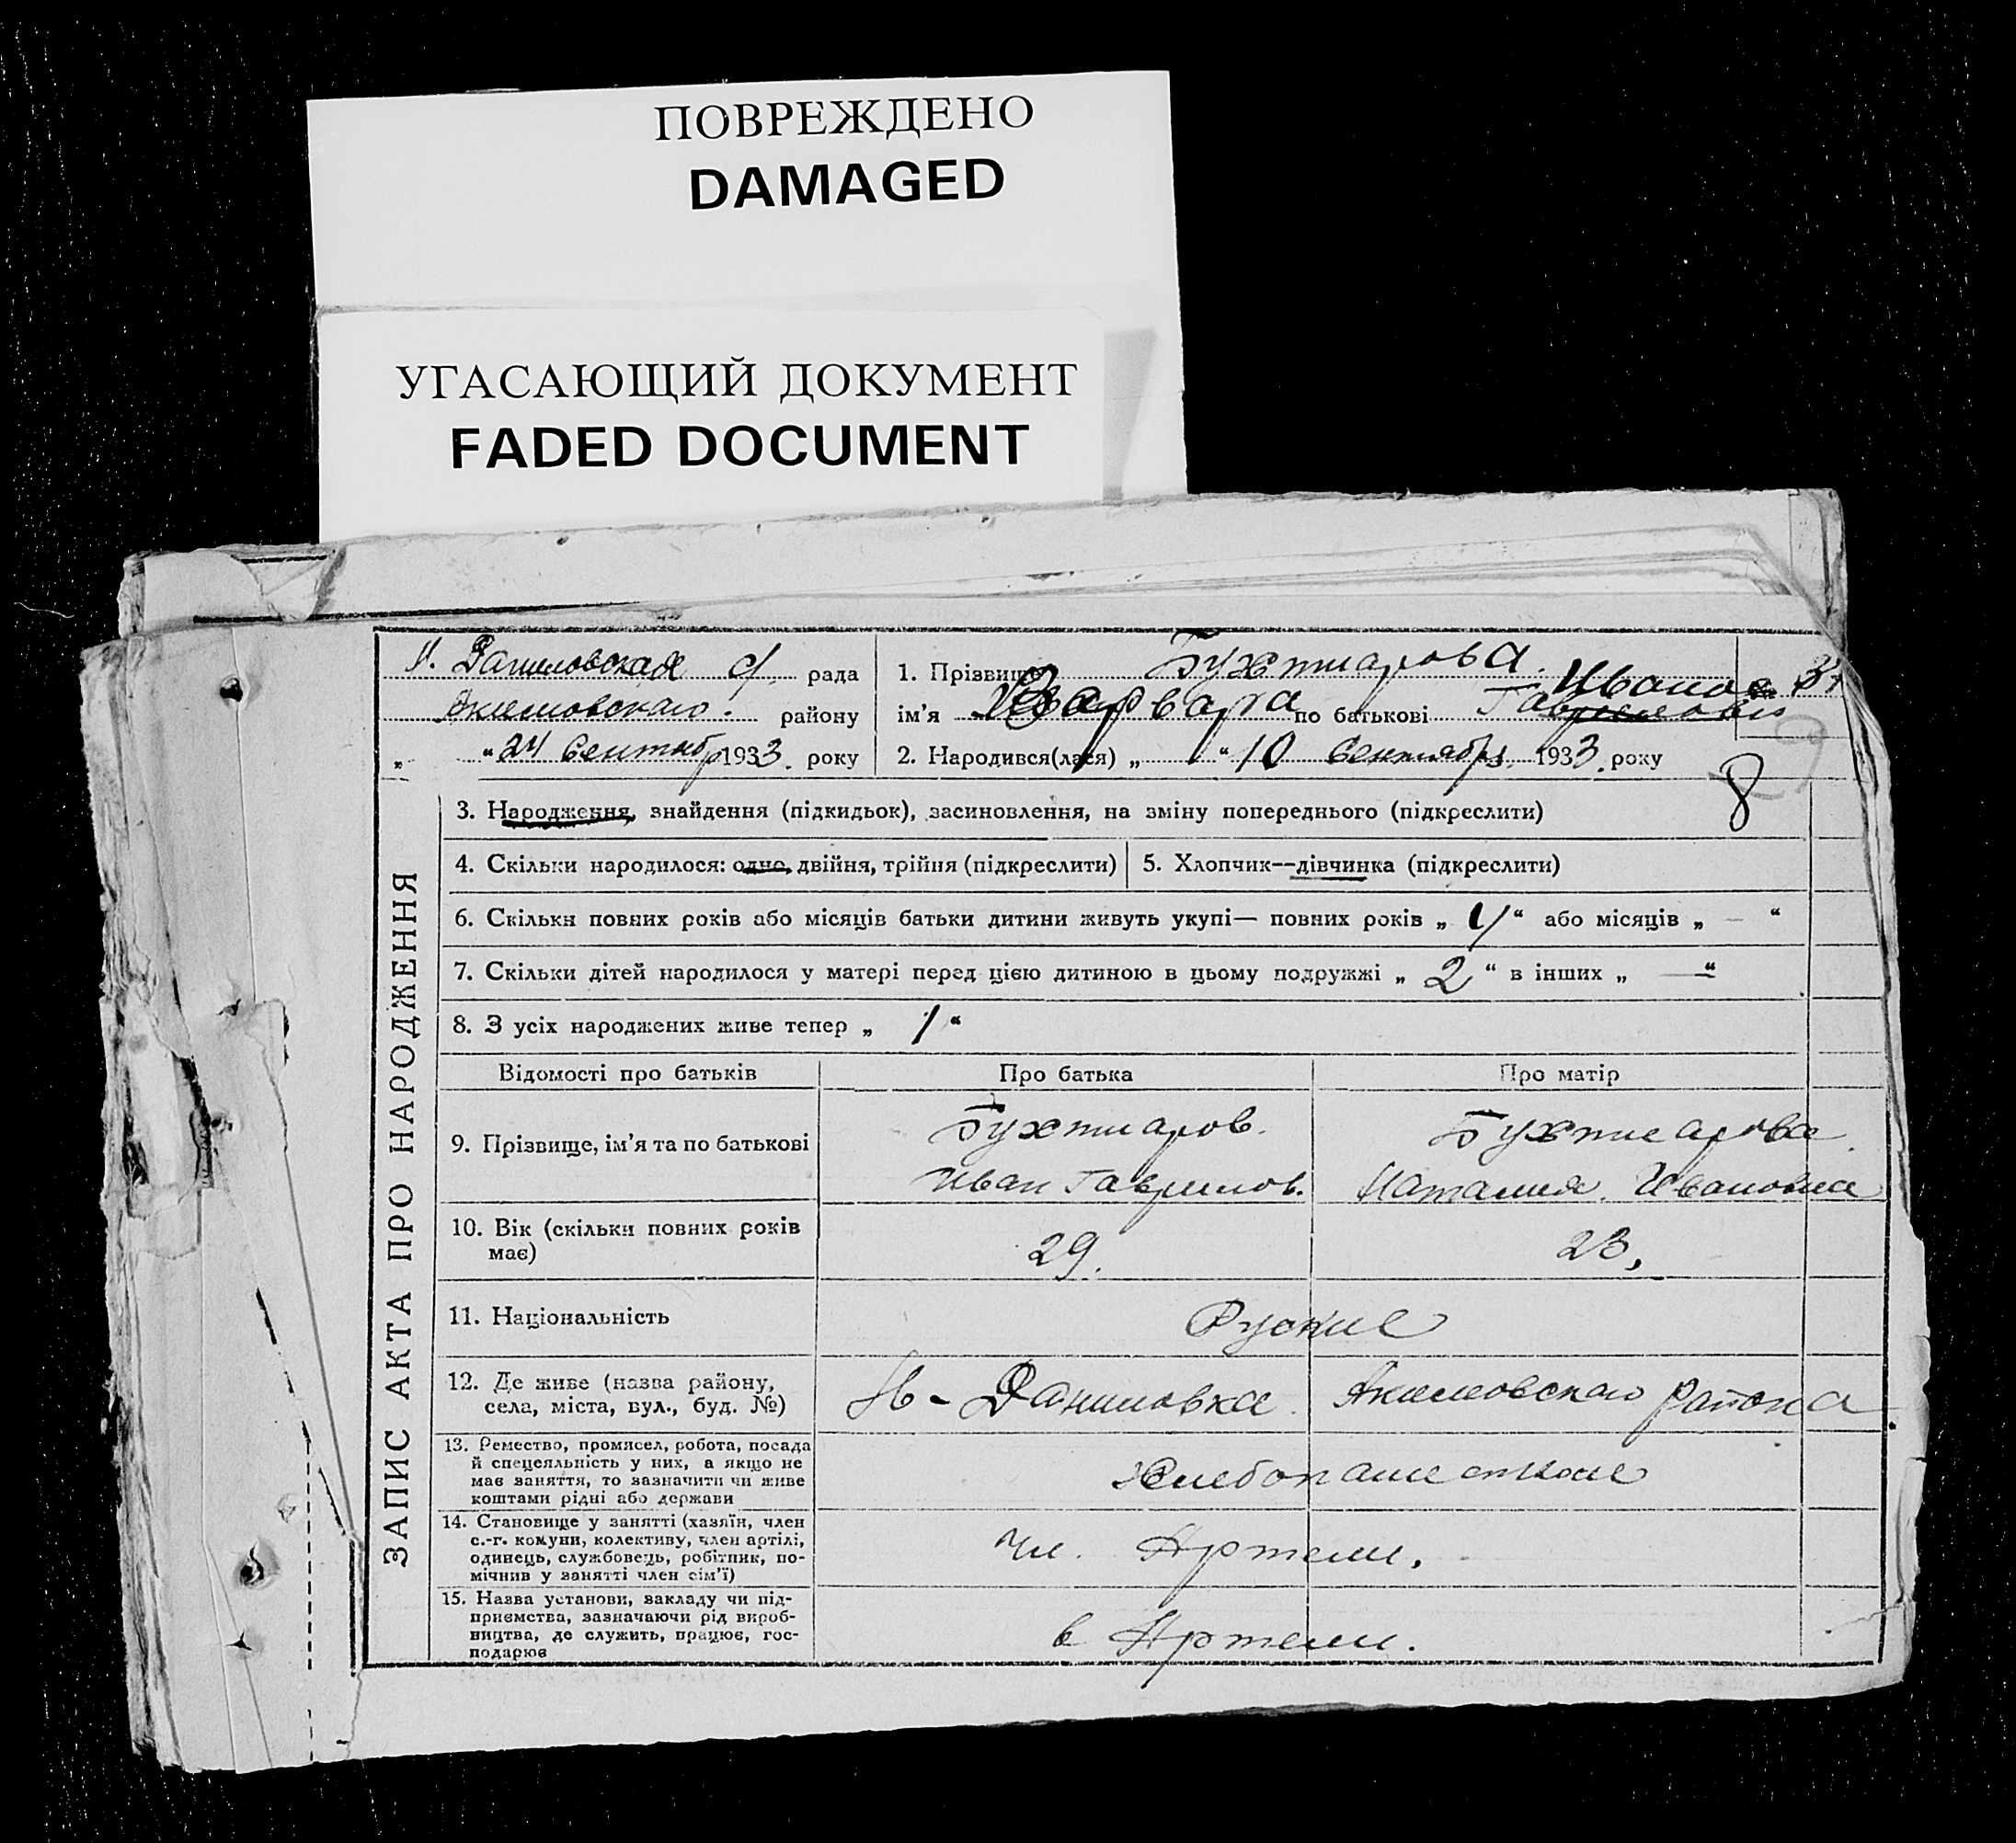 ПОВРЕЖДЕНО
DAMAGED
УГАСАЮЩИЙ ДОКУМЕНТ
FADED DOCUMENT
Н. Даниловская с/ рада
Акимовского району
„ “ 24 Сентябр 1933. року
1. Прізвище Бухтиарова.
ім’я Варвара по батькові Гавриловна Иванов
2. Народився(лася) „ “ 10 Сентября 1933. року
8
ЗАПИС АКТА ПРО НАРОДЖЕННЯ
3. Народження, знайдення (підкидьок), засиновлення, на зміну попереднього (підкреслити)
4. Скільки народилося: одно, двійня, трійня (підкреслити)
5. Хлопчик—дівчинка (підкреслити)
6. Скільки повних років або місяців батьки дитини живуть укупі— повних років „ 4 “ або місяців „ — “
7. Скільки дітей народилося у матері перед цією дитиною в цьому подружжі „ 2 “ в інших „ — “
8. З усіх народжених живе тепер „ 1 “
Відомості про батьків Про батька Про матір
9. Прізвище, ім’я та по батькові
Бухтиаров.
Иван Гаврилов.
Бухтиарова
Наталия Ивановна
10. Вік (скільки повних років
має)
29.
23,
11. Національність
Руские
12. Де живе (назва району,
села, міста, вул., буд. №)
Н - Даниловка Акимовского района
13. Ремество, промисел, робота, посада
й спецеяльність у них, а якщо не
має заняття, то зазначити чи живе
коштами рідні або держави
14. Становище у занятті (хазяїн, член
с.-г. комуни, колективу, член артілі,
одинець, службовець, робітник, по-
мічник у занятті член сім’ї)
Чл. Артели.
15. Назва установи, закладу чи під-
приємства, зазначаючи рід вироб-
ництва, де служить, працює, гос-
подарює
в Артели.